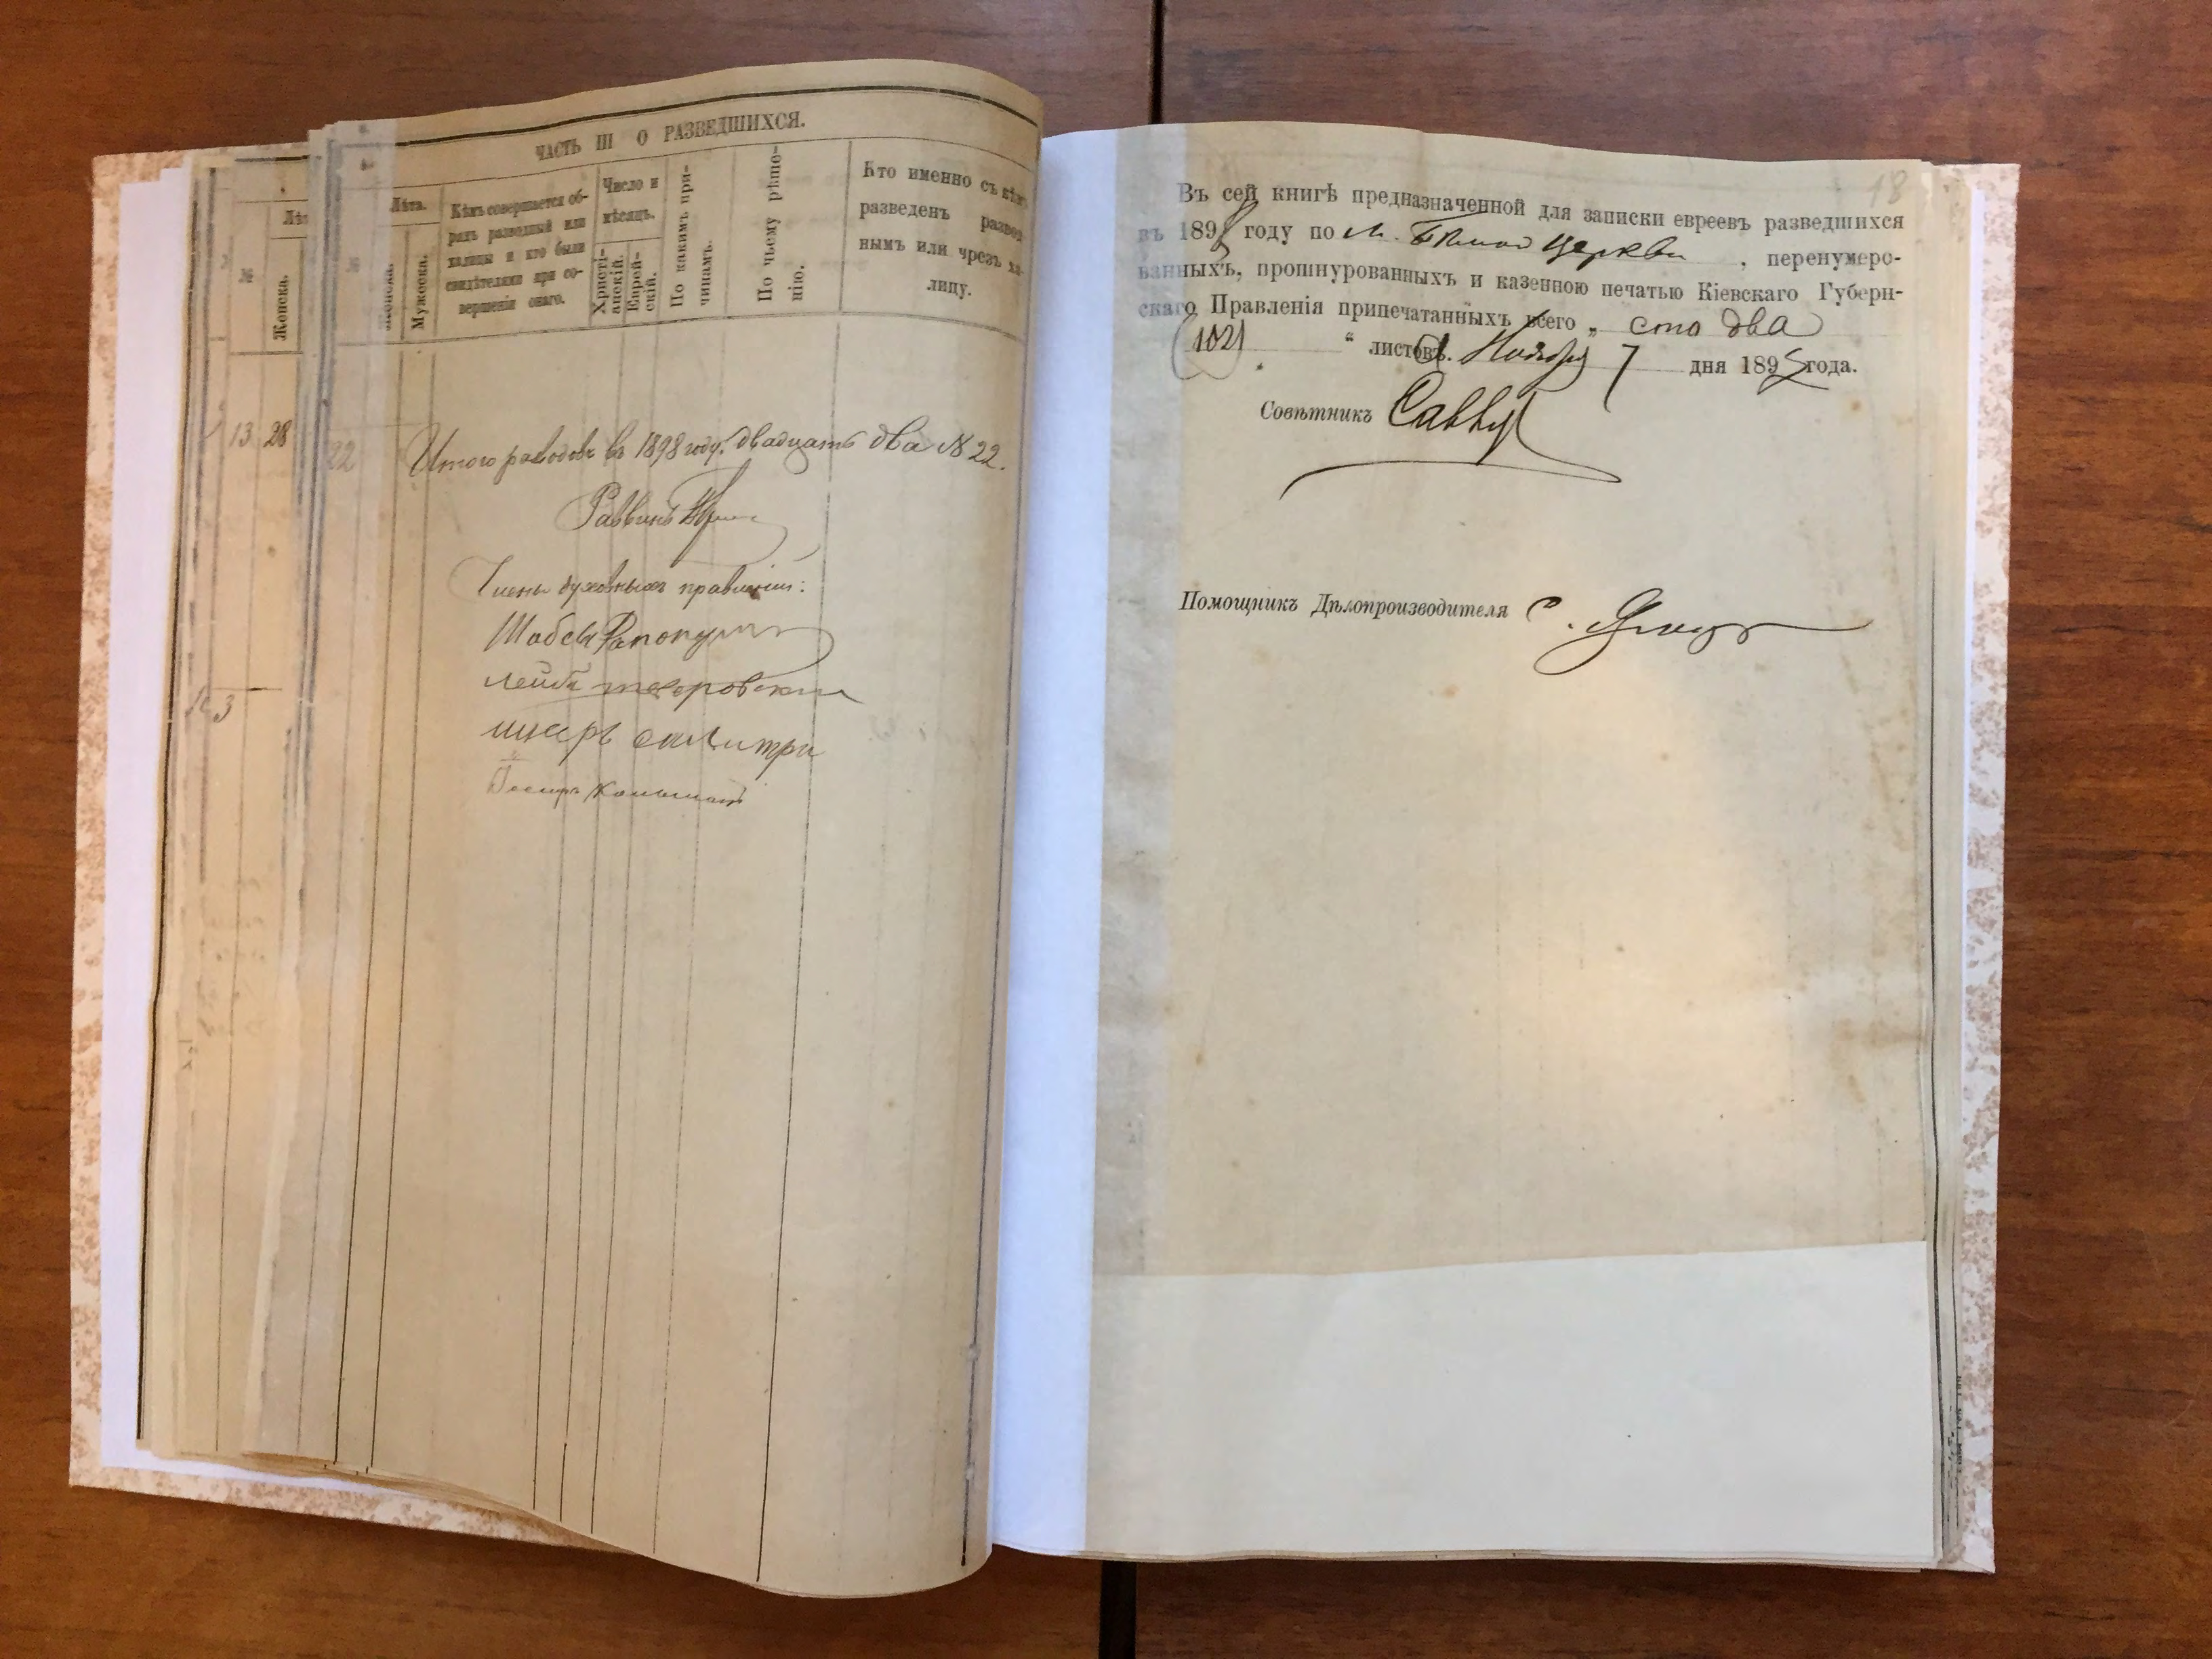 ЧАСТЬ III О РАЗВЕДШИХСЯ.
№
Лѣт
Женска.
№
Лѣта.
Женска.
Мужеска.
Кѣмъ совершается об-
рядъ разводный или
халицы и кто были
свидѣтелями при со-
вершеніи онаго.
Число и
мѣсяцъ.
Христі-
анскій.
Еврей-
скій.
По какимъ при-
чинамъ.
По чьему рѣше-
нію.
Кто именно съ кѣмъ
разведенъ развод
нымъ или чрезъ ха-
лицу.
13 28
22
Итого разводовъ въ 1898 году. двадцать два № 22.
Раввинъ
Члены духовныхъ правленій:
Шабсъ Рапопортъ
Лейба
№ 3
18
Въ сей книгѣ предназначенной для записки евреевъ разведшихся
въ 1898 году по м. Бѣлой Церкви , перенумеро-
ванныхъ, прошнурованныхъ и казенною печатью Кіевскаго Губерн-
скаго Правленія припечатанныхъ всего „ сто два
(102) “ листовъ. Ноября 7 дня 189 года.
Совѣтникъ
Помощникъ Дѣлопроизводителя С.